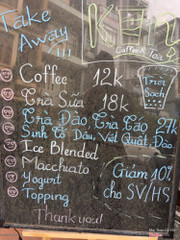 Take
Away
Coffee & Tea
Trái
Sạch
Coffee 12k
Trà Sữa 18k
Trà Đào Trà Táo 27k
Sinh Tố Dâu, Việt Quất, Đào
Ice Blended
Macchiato
Yogurt
Topping
Giảm 10%
cho SV/HS
Thank you!